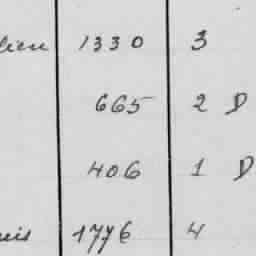 1330 3
665 2 D
406 1 D
1776 4